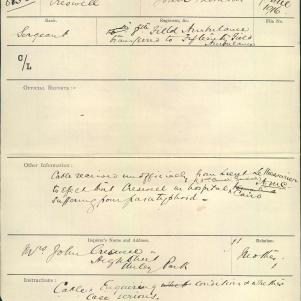 Creswell
1916
Rank.
Regiment, &c.
File No
Sergeant
Field Ambulance
transferred to Fifteenth Field
Ambulance
O/L
OFFICIAL REPORTS:—
Other Information:
Cable received unofficially from Lieut
to effect that Creswell in hospital Cairo
suffering from paratyphoid.
Inquirer's Name and Address.
Relation.
Mrs John Creswell
High Street
Unley Park
Mother
Instructions:
Cable Enquiring condition & whether
case serious.